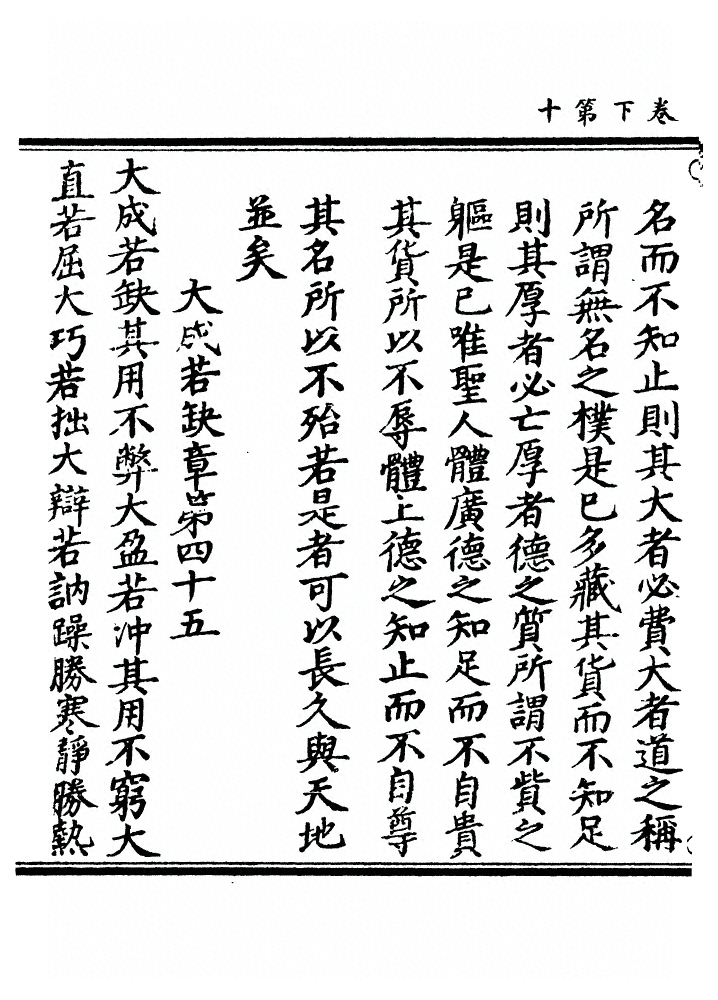 卷下第十
名而不知止則其大者必費大者道之稱
所謂無名之樸是已多藏其貨而不知足
則其厚者必亡厚者德之質所謂不貲之
軀是已唯聖人體廣德之知足而不自貴
其貨所以不辱體上德之知止而不自尊
其名所以不殆若是者可以長久與天地
並矣
大成若缺章第四十五
大成若缺其用不弊大盈若冲其用不窮大
直若屈大巧若拙大辯若訥躁勝寒靜勝熱